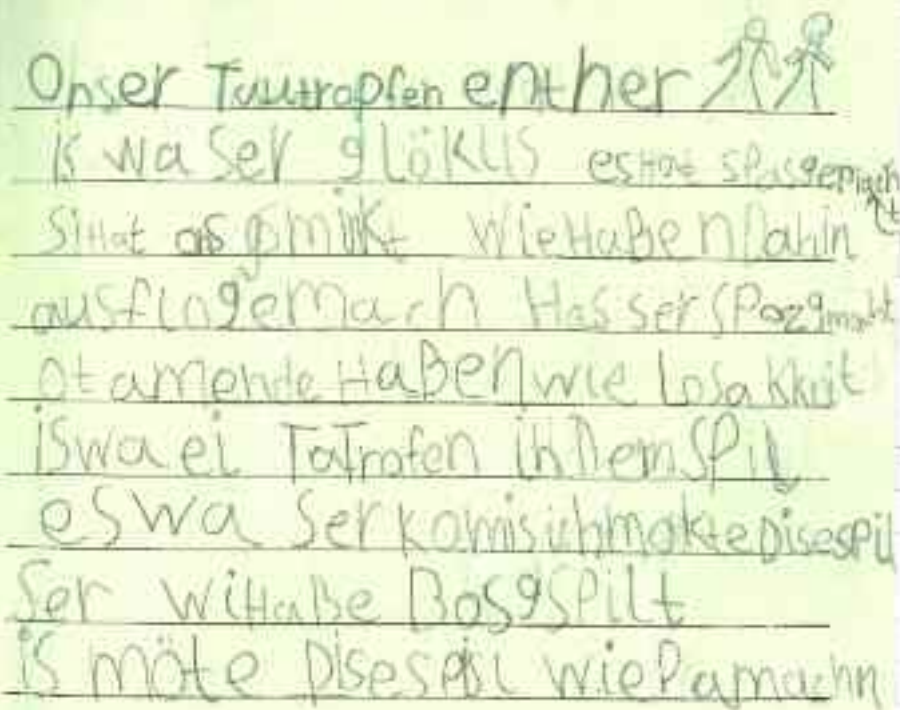 Onser Tautropfen enther
is wa ser glöklis es Hat spasgemacht
si Hat as gmikt wie Haßen Dahin
ausflogemach Hasser Spozgmacht
ot amende Haßen wie Losakkuit
iswa ei TaTrofen in Dem Spil
es wa ser komisich makte Disespil
ser wi Haße Bosgspilt
is möte Disespil wiedamachn